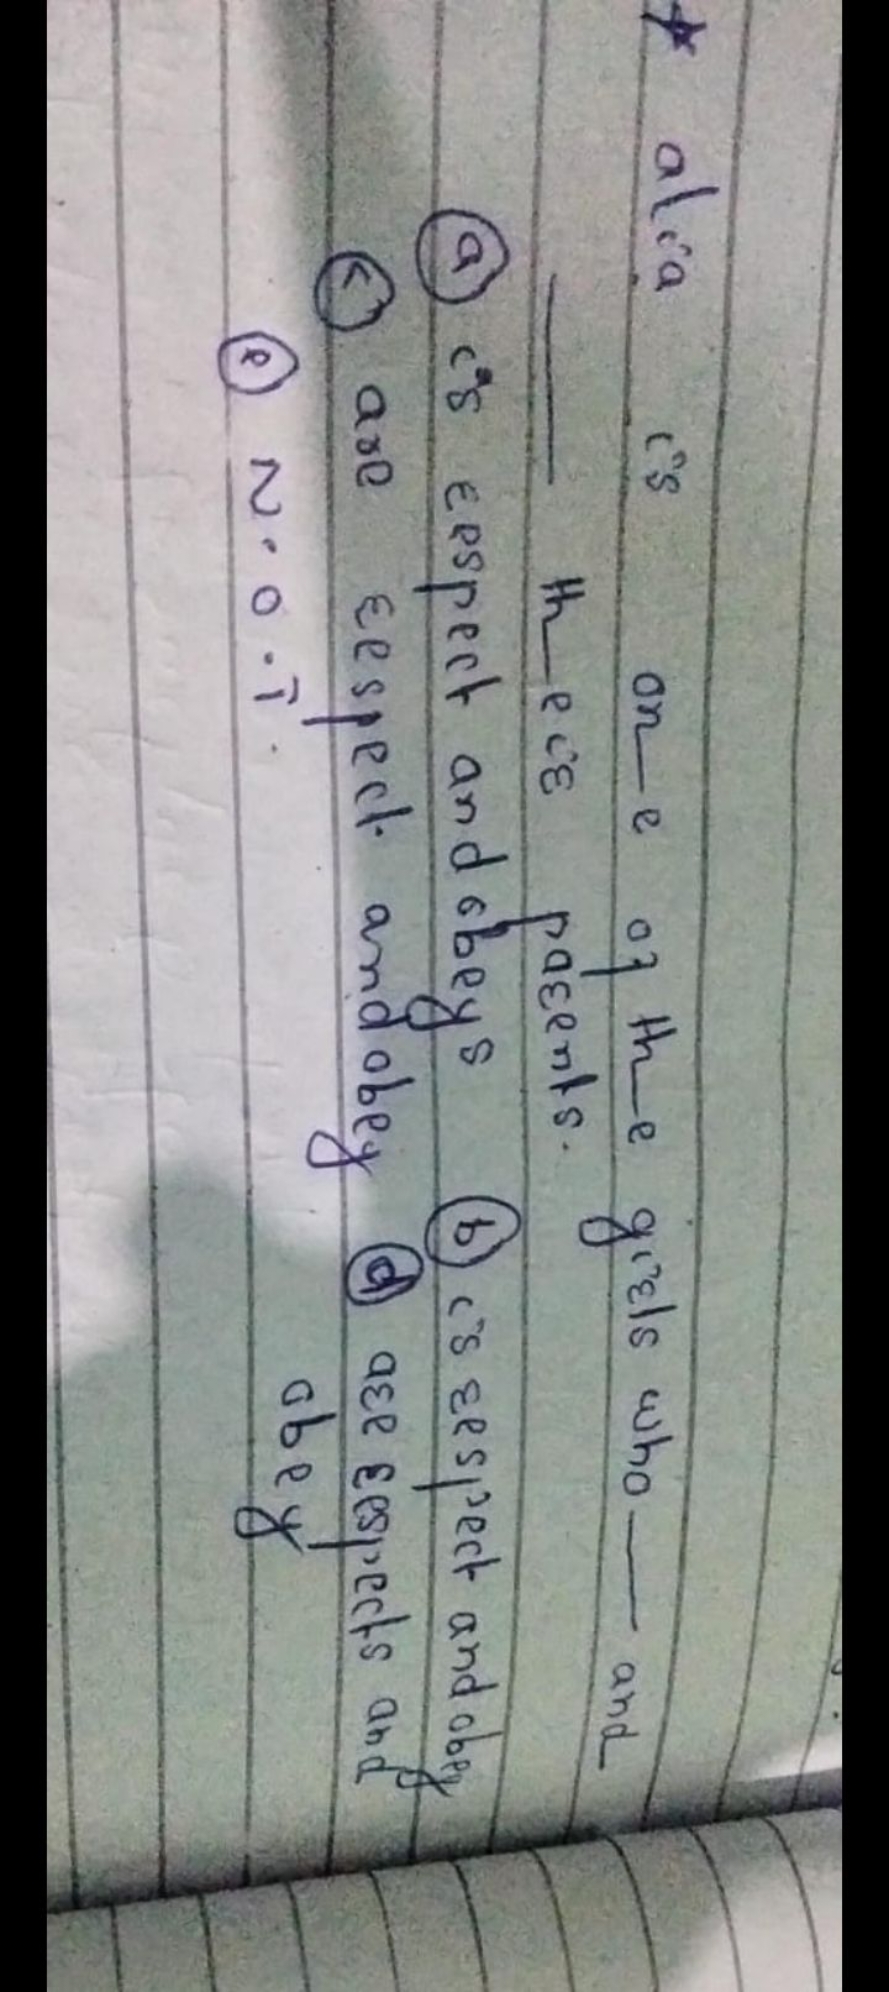 ★ alia is one of the girls who —— and
—— their parents.
(a) is respect and obeys (b) is respect and obey
(c) are respect and obey (d) are respects and
obey
(e) N.O.T.